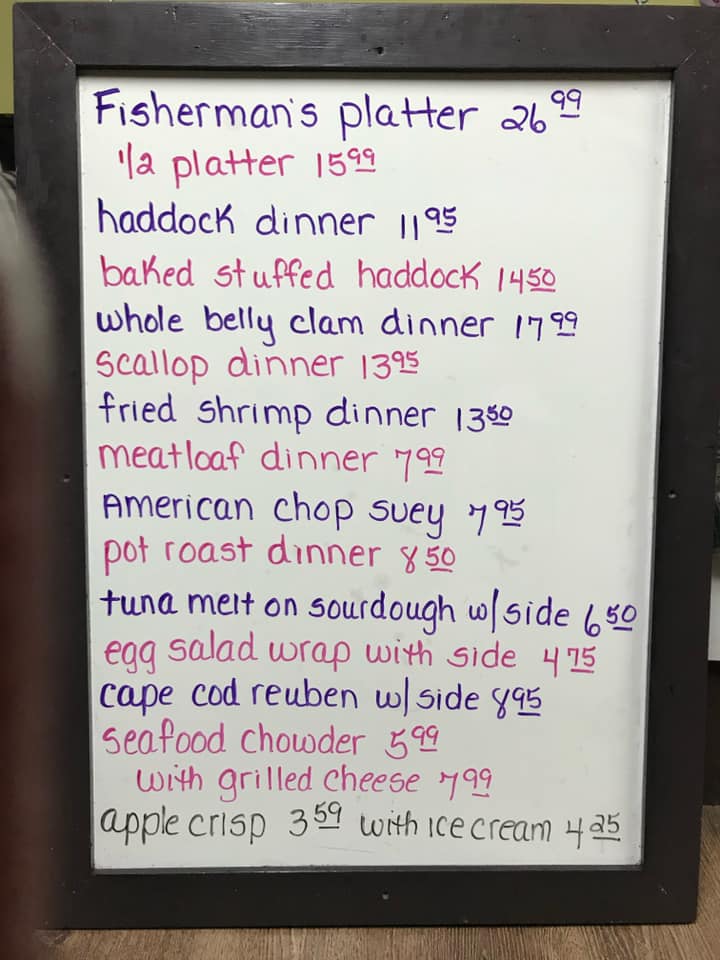 Fisherman's platter 26 99
1/2 platter 15 99
haddock dinner 11 95
baked stuffed haddock 14 50
whole belly clam dinner 17 99
scallop dinner 13 95
fried shrimp dinner 13 50
meatloaf dinner 7 99
American chop suey 7 95
pot roast dinner 8 50
tuna melt on sourdough w/ side 6 50
egg salad wrap with side 4 75
cape cod reuben w/ side 8 95
seafood chowder 5 99
with grilled cheese 7 99
apple crisp 3 59 with ice cream 4 25